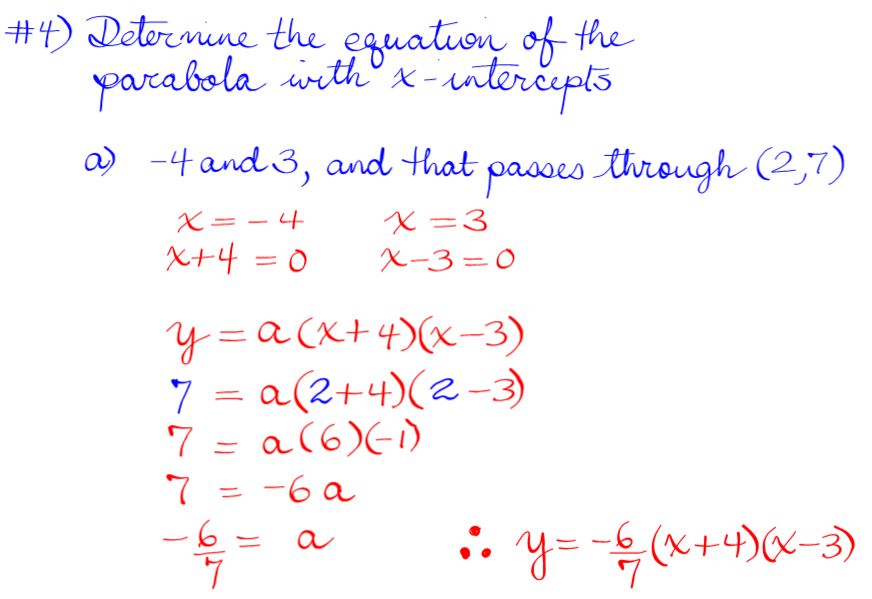 #4) Determine the equation of the
parabola with x-intercepts
a) -4 and 3, and that passes through (2,7)
x = -4    x = 3
x+4 = 0    x-3 = 0
y = a(x+4)(x-3)
7 = a(2+4)(2-3)
7 = a(6)(-1)
7 = -6a
-6/7 = a    ∴ y = -6/7(x+4)(x-3)